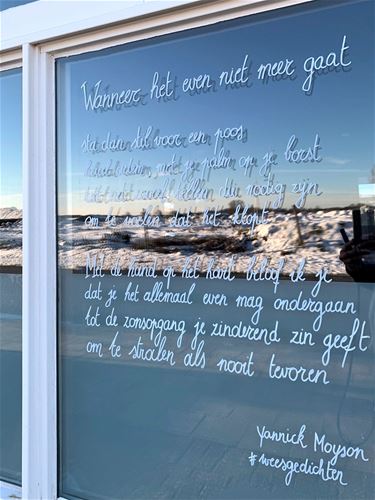 Wanneer het even niet meer gaat
sta dan stil voor een poos
met je palm op je borst
tot nodig zijn
om te voelen dat het klopt
Met de hand op het hart beloof ik je
dat je het allemaal even mag ondergaan
tot de zonsopgang je zinderend zin geeft
om te stralen als nooit tevoren
Yannick Moyson
#weesgedichten